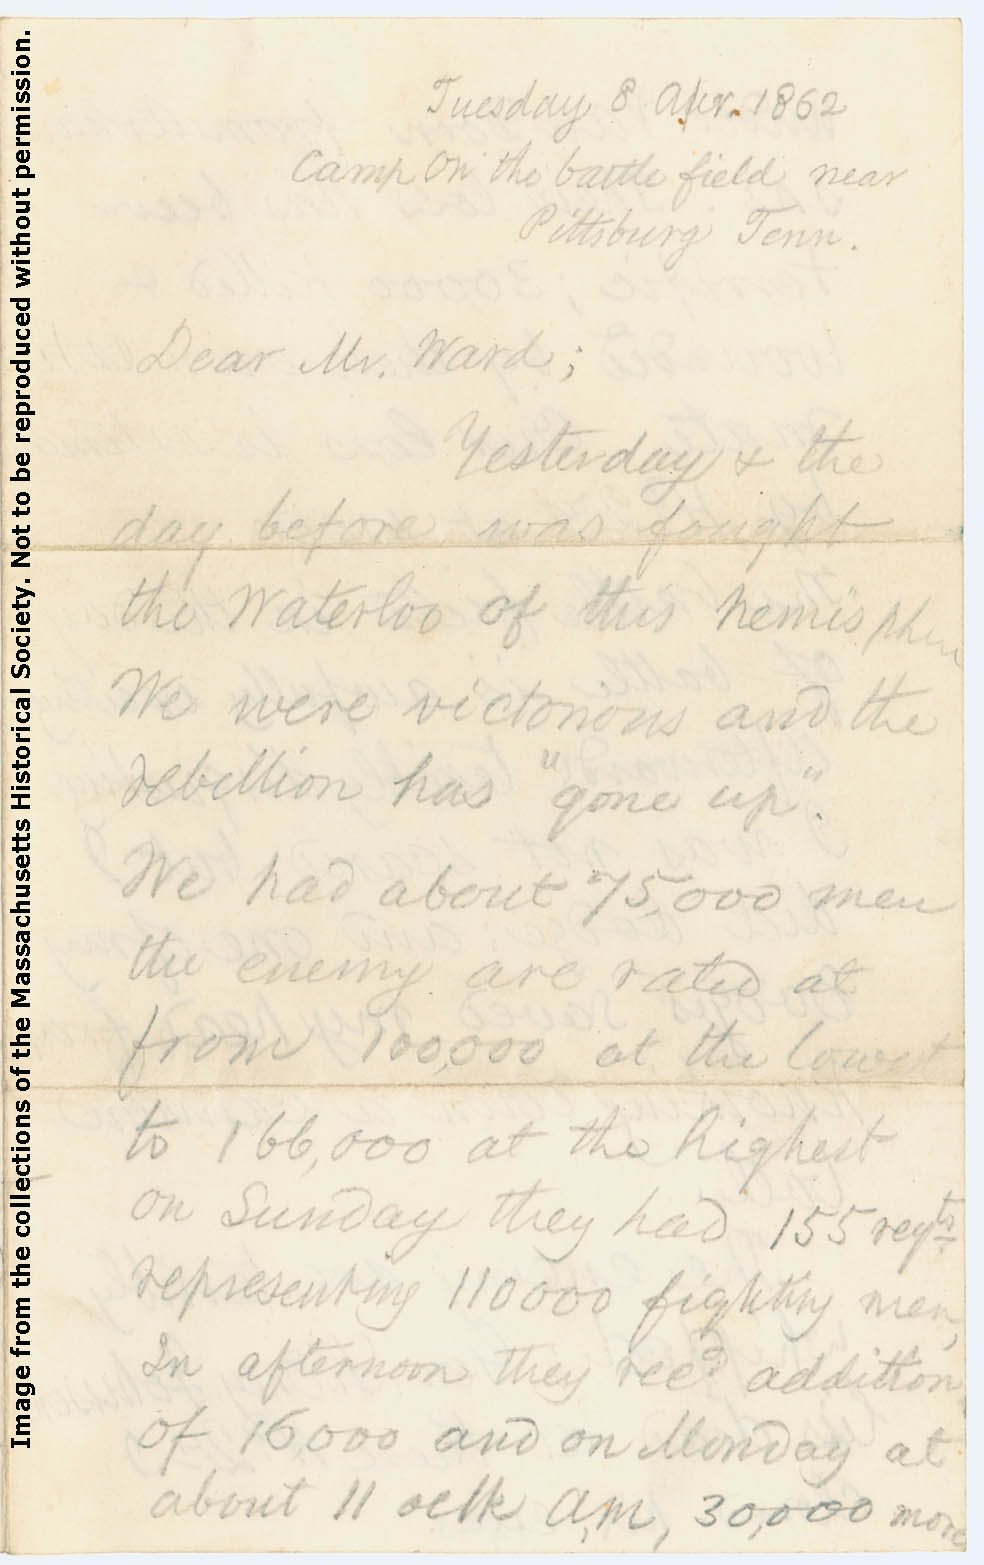 Image from the collections of the Massachusetts Historical Society. Not to be reproduced without permission.
Tuesday 8 Apr. 1862
Camp on the battle field near
Pittsburg Tenn.
Dear Mr. Ward;
Yesterday & the
day before was fought
the Waterloo of this hemisphere
We were victorious and the
rebellion has "gone up".
We had about 75,000 men
the enemy are rated at
from 100,000 at the lowest
to 166,000 at the highest
on Sunday they had 155 regts
representing 110000 fighting men,
In afternoon they recd addition
of 16,000 and on Monday at
about 11 oclk A,M, 30,000 more